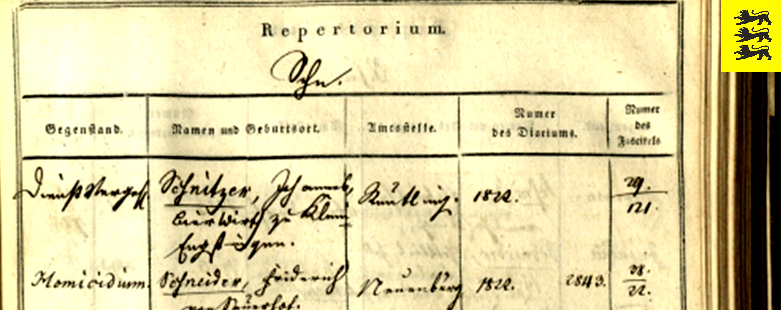 Repertorium.
Schn.
Gegenstand. Namen und Geburtsort. Amtsstelle. Numer des Diariums. Numer des Fascikels
Dienst Vergeh Schnitzer, Johannes, Reutling. 1822. 29.
bierwirth zu Klein 121.
Engstingen.
Homicidium. Schneider, Friderich Neuenbürg 1822. 2843. 38.
von 22.